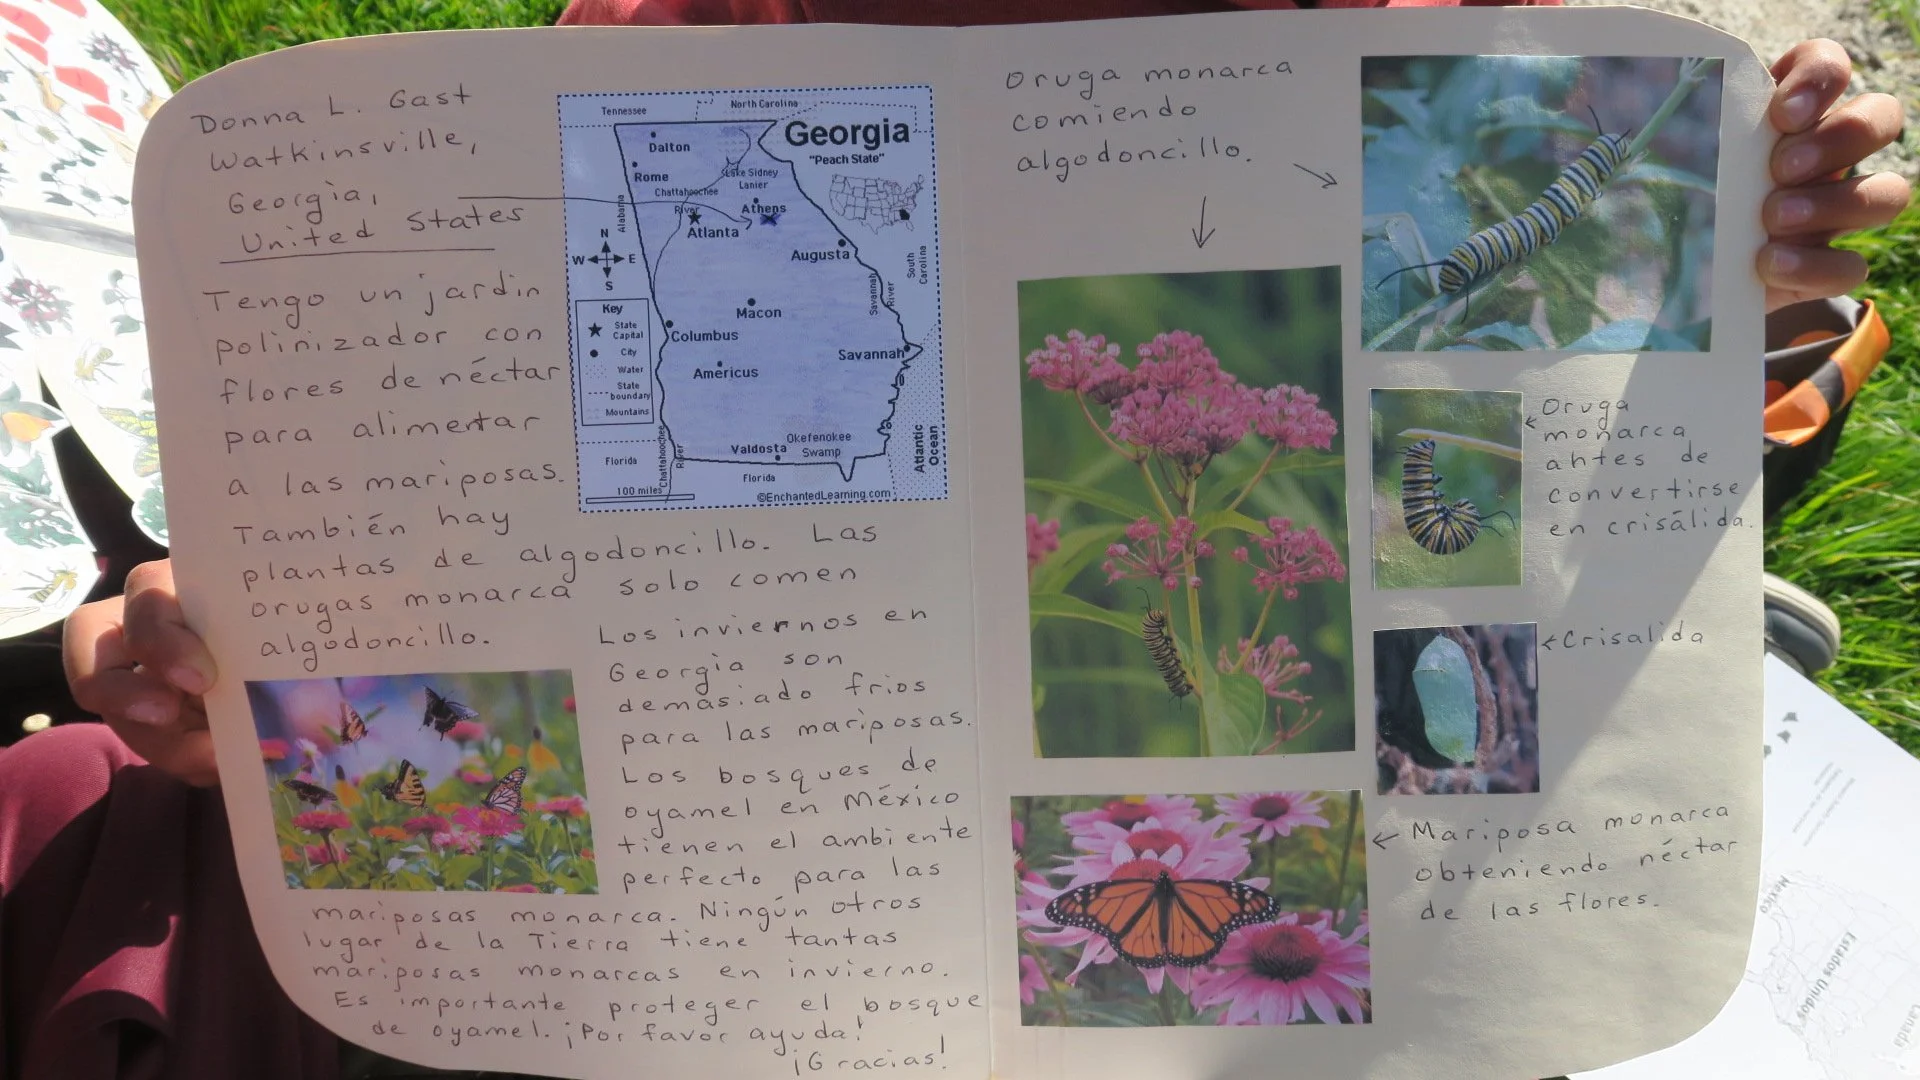 Donna L. Gast
Watkinsville,
Georgia,
United States
Tengo un jardin
polinizador con
flores de néctar
para alimentar
a las mariposas.
También hay
plantas de algodoncillo. Las
orugas monarca solo comen
algodoncillo.
Los inviernos en
Georgia son
demasiado frios
para las mariposas.
Los bosques de
oyamel en México
tienen el ambiente
perfecto para las
mariposas monarca. Ningún otros
lugar de la Tierra tiene tantas
mariposas monarcas en invierno.
Es importante proteger el bosque
de oyamel. ¡Por favor ayuda!
¡Gracias!
Tennessee
North Carolina
Georgia
"Peach State"
Dalton
Rome
Lake Sidney
Lanier
Chattahoochee
River
Athens
Atlanta
Alabama
Augusta
South
Carolina
N
W E
S
Savannah
River
Key
State
Capital
City
Water
State
boundary
Mountains
Macon
Columbus
Savannah
Americus
Okefenokee
Swamp
Valdosta
Atlantic
Ocean
Florida
Chattahoochee
River
Florida
100 miles
©EnchantedLearning.com
Oruga monarca
comiendo
algodoncillo.
Oruga
monarca
antes de
convertirse
en crisálida.
Crisalida
Mariposa monarca
obteniendo néctar
de las flores.
Mexico
Estados Unidos
Canada